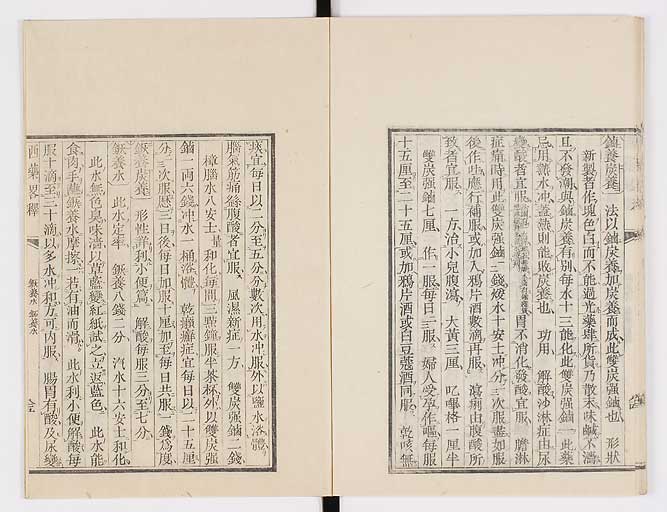 鏀養炭養　法以鏀炭養加炭養而成此雙炭強鏀也　形狀
新製者作塊色白而不能過光藥肆所貨乃散末味鹹不濇
且不發潮與鏀炭養有別每水十三能化此雙炭強鏀一此藥
忌用熱水冲蓋熱則能敗炭養也　功用　解酸沙淋症由尿
酸者宜服　胃不消化發酸宜服　膽淋
症痛時用此雙炭強鏀二錢煖水十安士冲分三次服盡如服
後作嘔應行補服或加入鴉片酒數滴再服　瀉痢由腹酸所
致者宜服　一方治小兒腹瀉　大黃三厘　叱嗶格一厘半
雙炭強鏀七厘　作一服每日三服　婦人受孕作嘔每服
十五厘至二十五厘或加鴉片酒或白豆蔻酒同服　乾咳無
痰宜每日以二分至五分分數次用水冲服外以鹽水洛體
腦氣筋痛發腹酸者宜服　風濕新症一方　雙炭強鏀一錢
樟腦水八安士和化每間三點鐘服半茶杯外以雙炭強
鏀一兩六錢冲水一桶浴體　乾癩癬症宜每日以二十五厘
分三次服歷三日後每日加服十厘加至每日共服一錢爲度
鋠養炭養　形性詳利小便篇　解酸每服三分至七分
鋠養水　此水定率　鋠養八錢二分　汽水十六安士和化
此水無色臭味濇以草藍變紅紙試之立返藍色　此水能
食肉手蘸鋠養水摩擦一若有油而滑　此水利小便解酸每
服十滴至三十滴以多水冲和方可内服　腸胃有酸及尿變
西藥畧釋
鋠養水